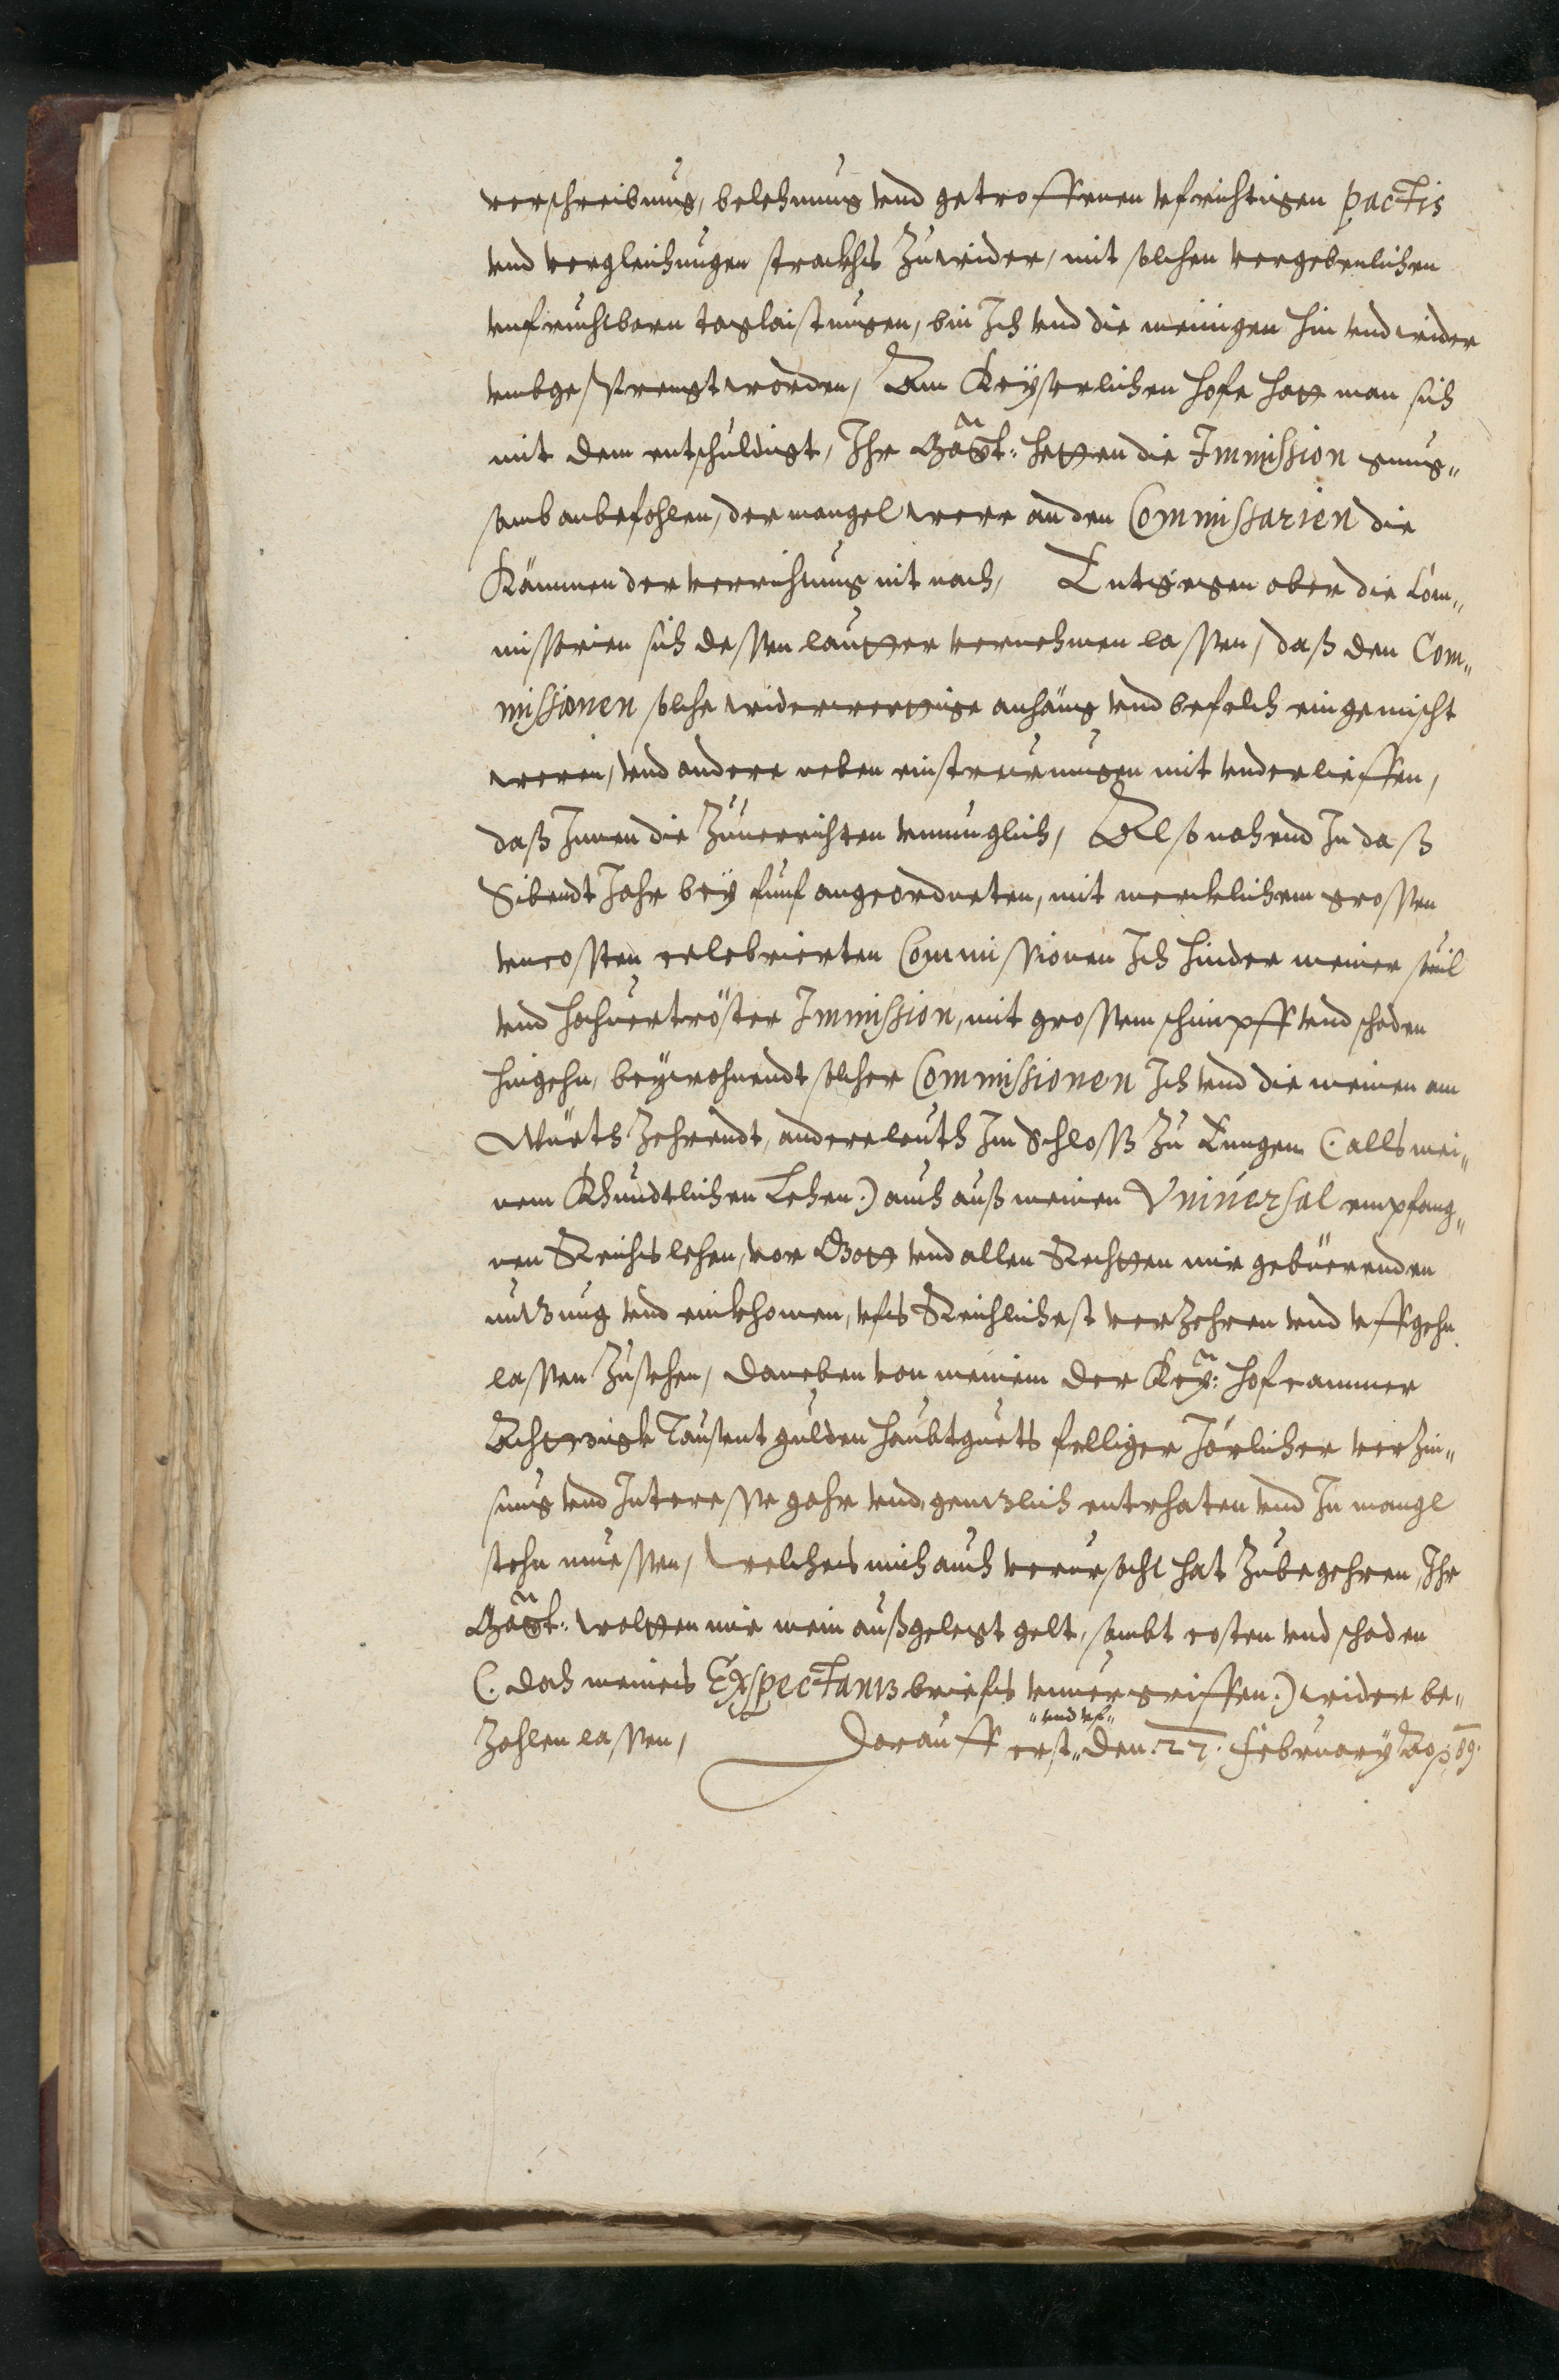 verschreibung, belehnung vnd getroffenen vfrichtigen pactis
vnd vergleichungen strackhs Zuwider, mit solchen vergebenlichen
vnfruchtbarn taglaistungen, bin Ich vnd die meinigen hin vnd wider
vmbgesprengt worden, Am Keyserlichen Hofe hatt man sich
mit dem entschuldigt, Ihr Maÿt: hetten die Immission gnug„
samb anbefohlen, der mangel were an den Commissarien die
Kämmen der verrichtung nit nach, Entgegen aber die Com„
missarien sich dessen lautter vernehmen lassen, daß den Com„
missionen solche widerwertige anhäng vnd befelch eingemischt
weren, vnd andere neben einstrewungen mit vnderlieffen,
daß Innen die Zuuerrichten vnmuglich, Also nahend In daß
Sibendt Jahr bey funf angeordneten, mit mercklichem grossen
vncosten celebrierten Commissionen Ich hinder meiner souil
vnd hochuertröster Immission, mit grossem schimpff vnd schaden
hingehn, beywohnendt solcher Commissionen Ich vnd die meinen am
Würth Zehrendt, andere leuth Im Schloss Zu Kungen (: alls mei„
nem Khundtlichen Lehen :) auch auß meinen Vniuersal empfang„
nen Reichslehen, vor Gott vnd allen Rechtten mir gebüerenden
nutzung vnd einkhomen, vfs Reichlichest verzehren vnd vffgehn
lassen Zusehen, daneben von meinem der Key: Hofcammer
Achtzigk Tausent gulden haubtguets felliger Jörlicher verzin„
sung vnd Interesse gahr vnd gentzlich entrhaten vnd In mangl
stehn muessen, welches mich auch verursacht hat Zubegehren, Ihr
Maÿt: woltten mir mein außgelegt gelt, sambt costen vnd schaden
(: doch meines Expectantz briefs vnuergriffen :) wider be„
Zahlen lassen, Darauff erst „vnd vf„ den 27. February Ao p 89.